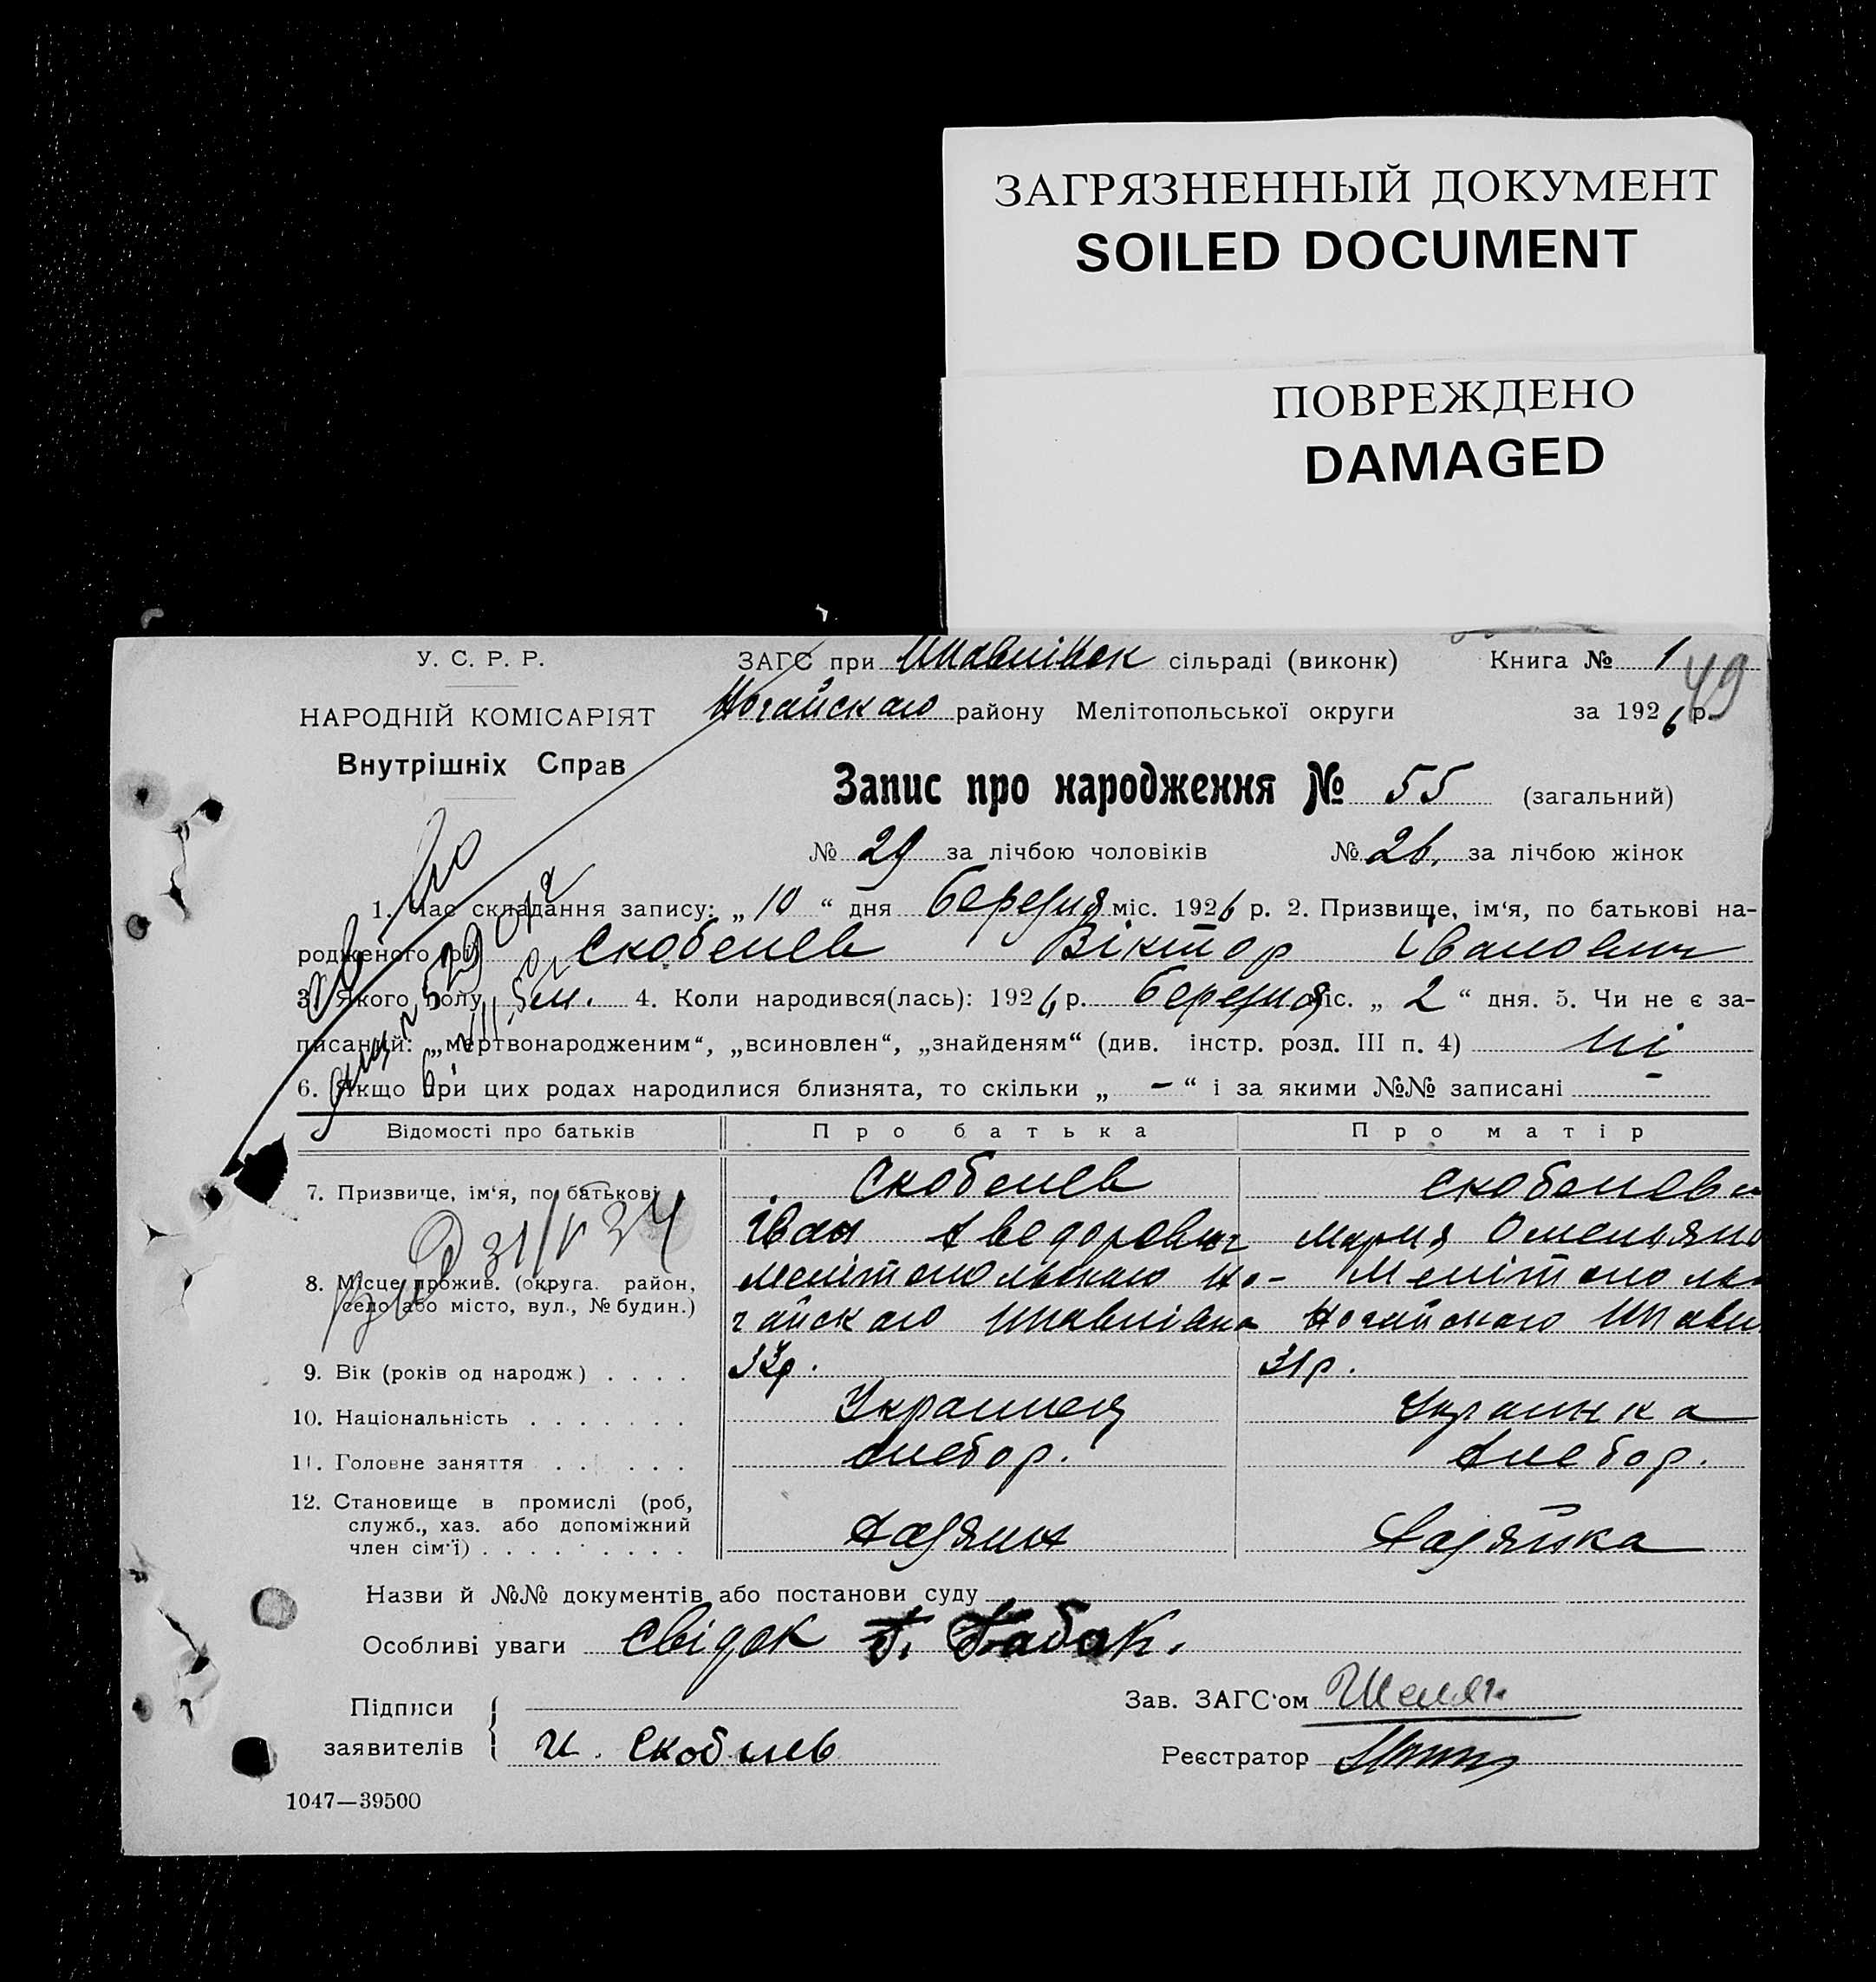 ЗАГРЯЗНЕННЫЙ ДОКУМЕНТ
SOILED DOCUMENT
ПОВРЕЖДЕНО
DAMAGED
У. С. Р. Р.
НАРОДНІЙ КОМІСАРІЯТ
Внутрішніх Справ
ЗАГС при сільраді (виконк) Книга № 1
49
Ногайскаго району Мелітопольської округи за 1926 р.
Запис про народження № 55 (загальний)
№ 29 за лічбою чоловіків № 26. за лічбою жінок
1. Час складання запису: „10“ дня березня міс. 1926 р. 2. Призвище, ім‘я, по батькові на-
родженого Скобелев Віктор Іванович
3. Якого полу м. 4. Коли народився(лась): 1926 р. березня міс. „2“ дня. 5. Чи не є за-
писаний: „мертвонародженим“, „всиновлен“, „знайденям“ (див. інстр. розд. III п. 4) ні
6. Якщо при цих родах народилися близнята, то скільки „ — “ і за якими №№ записані —
Відомості про батьків Про батька Про матір
7. Призвище, ім‘я, по батькові Скобелев Скобелева
Іван Мария
8. Місце прожив. (округа. район, село або місто, вул., № будин.) Мелітопольскаго Но-
гайскаго Ногайскаго
9. Вік (років од народж) . . . . 33р. 31р.
10. Національність . . . . . . . Украинец Украинка
11. Головне заняття . . . . . . хлебор. хлебор.
12. Становище в промислі (роб,
служб., хаз. або допоміжний
член сім‘ї) . . . . . . . . . Хазяин Хазяйка
Назви й №№ документів або постанови суду
Особливі уваги Свідок
Підписи
заявителів И. Скобелев
Зав. ЗАГС‘ом
Реєстратор
1047—39500